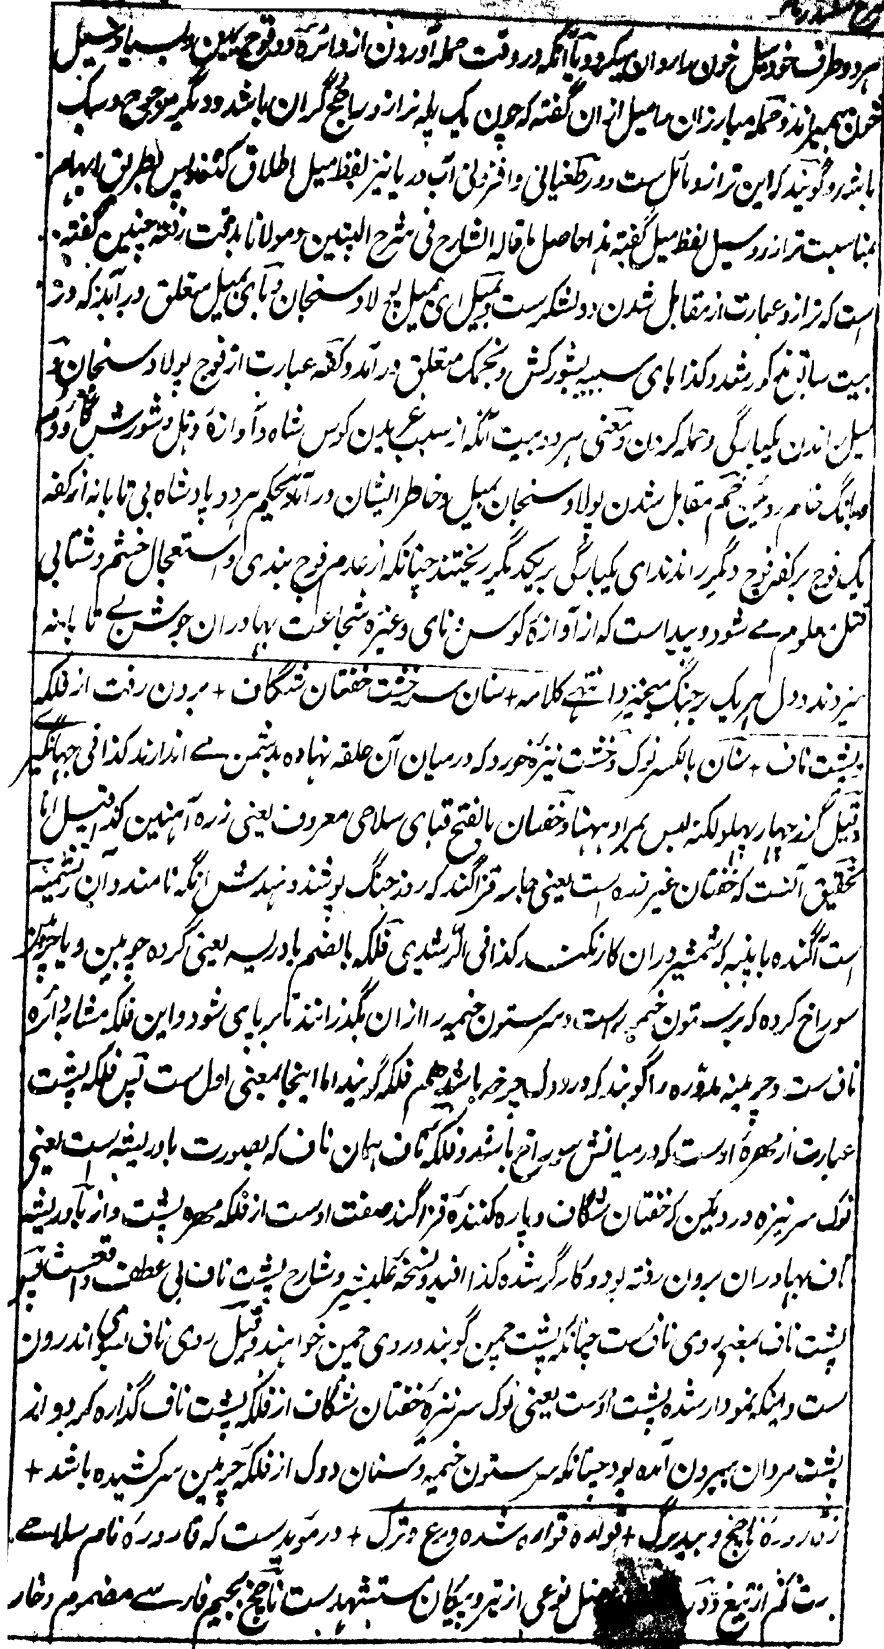 هر دو طرف خود سیل خون ها روان میکرد و یا آنکه در وقت حمله آوردن از دائره دو فوج همین دلیا و سیل
خون بهم میزند و حمله مبارزان ما میل ازان گفته که چون یک پله ترازو راجح گران باشد و دیگر مرجوح و سبک
باشد گویند که این ترازو مائل ست و در طغیانی و افزونی آب دریا نیز لفظ میل اطلاق کنند پس بطریق ایهام
بمناسبت ترازو و سیل لفظ میل گفته هذا حاصل ما قاله الشارح فی شرح البیتین و مولانا بدقت رفته چنین گفته
است که ترازو عبارت از مقابل شدن دو لشکرست و بمیل ای بمیل پولاد سنجان و بای بمیل متعلق در آمد که در
بیت سابق مذکور شد و کذا بای سببیه بشورکش و نجمک متعلق در آمد و کفه عبارت از فوج پولاد سنجان و
سیل راندن یکبارگی و حمله کردن و معنی هر دو بیت آنکه از سبب غریدن کوس شاه و آوازه دهل و شورش گاودم
و بانگ خم روئین خم مقابل شدن پولاد سنجان بمیل و خاطر ایشان در آمد بحکم هر دو پادشاه بی تابانه از کفه
یک فوج بر کفه فوج دیگر راندند ای یکبارگی بر یکدیگر ریختند چنانکه از عدم فوج بندی و استعجال خشم و شتابی
قتل معلوم می شود و پیداست که از آوازه کوس و نای و غیره شجاعت بهادران جوشن بی تابانه
میزدند و دل هر یک بجنگ میخیزد انتهی کلامه + سنان سر خشت خفتان شگاف + برون رفت از فلکه
پشت ناف + سنان بالکسر نوک و خشت نیزه خورد که درمیان آن حلقه نهاده بدشمن می اندازند کذا فی جهانگیری
و قیل گرز چهار پهلو لکنه لیس بمراد ههنا و خفتان بالفتح قبای سلاحی معروف یعنی زره آهنین کذا قیل اما
تحقیق آنست که خفتان غیر زره است یعنی جامه قزاگند که روز جنگ پوشند و بهندش انگه نامند و آن ریشمینه
است آگنده با پنبه که شمشیر دران کار نکند کذا فی الرشیدی فلکه بالضم بادریسه یعنی گرده چوبین و یا چرمین
سوراخ کرده که بر ستون خیمه است و سر ستون خیمه را ازان بگذرانند تا بر پای شود و این فلکه مشابه دائره
ناف ست و چرمینه مدوره را گویند که در دوک چرخه باشد هم فلکه گویند اما اینجا بمعنی اول ست پس فلکه پشت
عبارت از مهره اوست که درمیانش سوراخ باشد و فلکه ناف همان ناف که بصورت بادریسه است یعنی
نوک سر نیزه در دیکن که خفتان شگاف و پاره کننده قزاگند صفت اوست از فلکه مهره پشت و از بادریسه
ناف بهادران برون رفته بود و کارگر شده کذا افید و نسخه علیشیر و شارح پشت ناف بی عطف واقعست
پشت ناف بمعنی روی ناف ست چنانکه پشت چمن گویند و روی چمن خواهند و قیل روی ناف بسوی اندرون
ست و اینکه نمودار شده پشت اوست یعنی نوک سر نیزه خفتان شگاف از فلکه پشت ناف گذاره کرده و از
پشت مردان بیرون آمده بود چنانکه سر ستون خیمه و سنان دوک از فلکه چرمین سر کشیده باشد +
ز قاروره ناچخ و بیدبرگ + قواره قواره شده درع و ترک + در مؤید ست که قاروره نام سلاحی
نوعی از تیر و پیکان ناچخ بجیم فارسی مضموم و خا